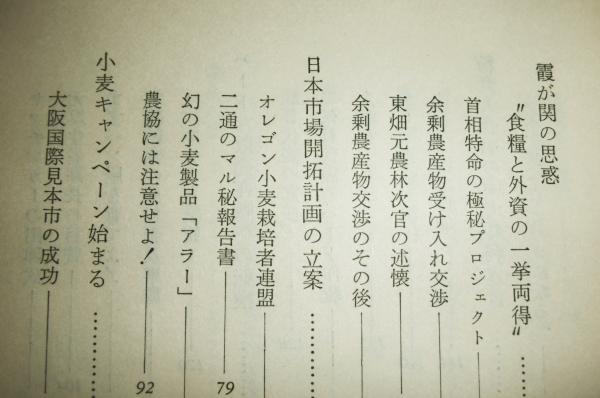 霞が関の思惑
〝食糧と外資の一挙両得〟………
首相特命の極秘プロジェクト
余剰農産物受け入れ交渉
東畑元農林次官の述懐
余剰農産物交渉のその後
日本市場開拓計画の立案………
オレゴン小麦栽培者連盟
二通のマル秘報告書 79
幻の小麦製品「アラー」
農協には注意せよ! 92
小麦キャンペーン始まる………
大阪国際見本市の成功